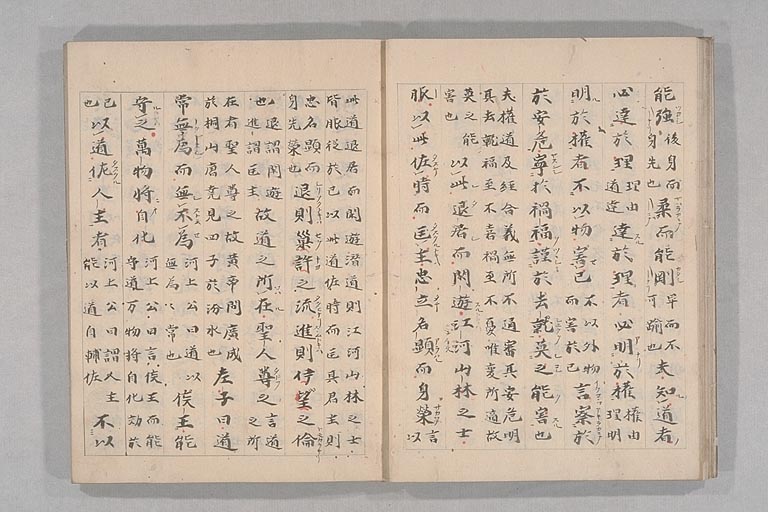 能強後身而身先也柔而能剛卑而不可踰也夫知道者
必達於理理由道達達於理者必明於權權由理明
明於權者不以物害己不以外物而害於己言察於
於安危寧於禍福謹於去就莫之能害也
夫權道反經合義無所不通審其安危明
其去就福至不喜禍至不憂唯變所適故
莫之能害也以此退居而閑遊江河山林之士
服以此佐時而匡主忠立名顯而身榮言以
此道退居而閑遊潜道則江河山林之士
皆服從於己以此道佐時而匡其君主則
忠名顯而身先榮也退則巢許之流進則伊望之倫
也退謂閑遊也進謂匡主故道之所在聖人尊之言道之所
在者聖人尊之故黄帝問廣成
於桐山唐堯見四子於汾水也老子曰道
常無爲而無不爲河上公曰道以無爲爲常也侯王能
守之萬物將自化河上公曰言侯王而能守道万物將自化効於
己也以道佐人主者河上公曰謂人主能以道自輔佐不以